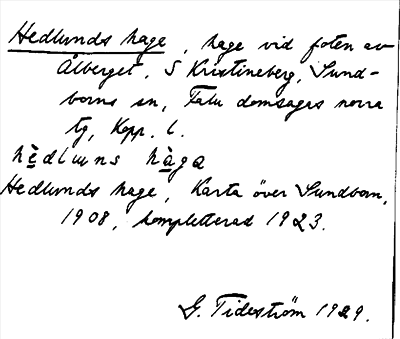 Hedlunds hage, hage vid foten av
Ålberget, S Kristineberg, Sund-
borns sn, Falu domsagas norra
tg, Kopp. l.
hèdluns hàga
Hedlunds hage, Karta över Sundborn,
1908, kompletterad 1923.
G. Tideström 1929.